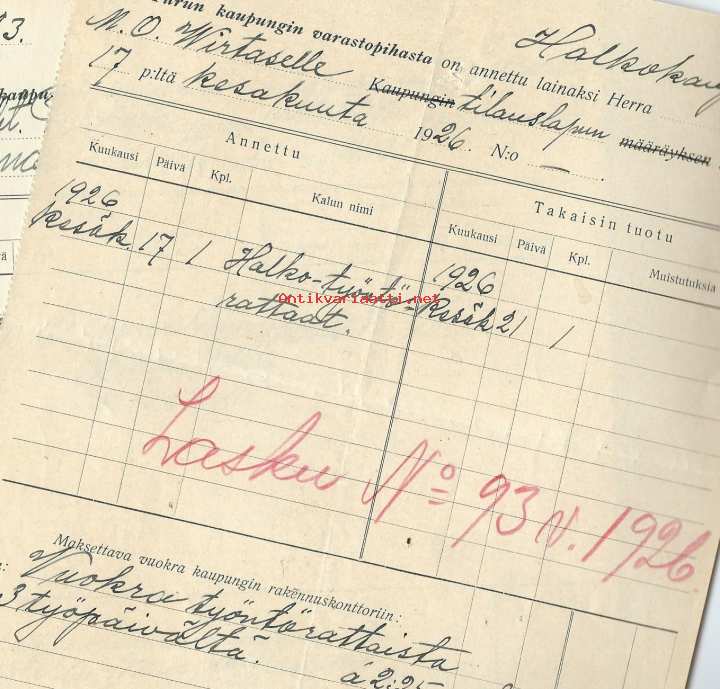 kaupungin varastopihasta on annettu lainaksi Herra
M. O. Wirtaselle Kaupungin tilauslapun määräyksen
17 p:ltä kesäkuuta 1926. N:o —
Annettu
Takaisin tuotu
Kuukausi Päivä Kpl. Kalun nimi
Kuukausi Päivä Kpl. Muistutuksia
1926
Kesäk. 17 1 Halko-työntö-
rattaat.
1926
Kesäk 21 1
Antikvariaatti.net
Lasku No 93 v. 1926.
Maksettava vuokra kaupungin rakennuskonttoriin:
Vuokra työntörattaista
3 työpäivältä.
á 2:25
3.